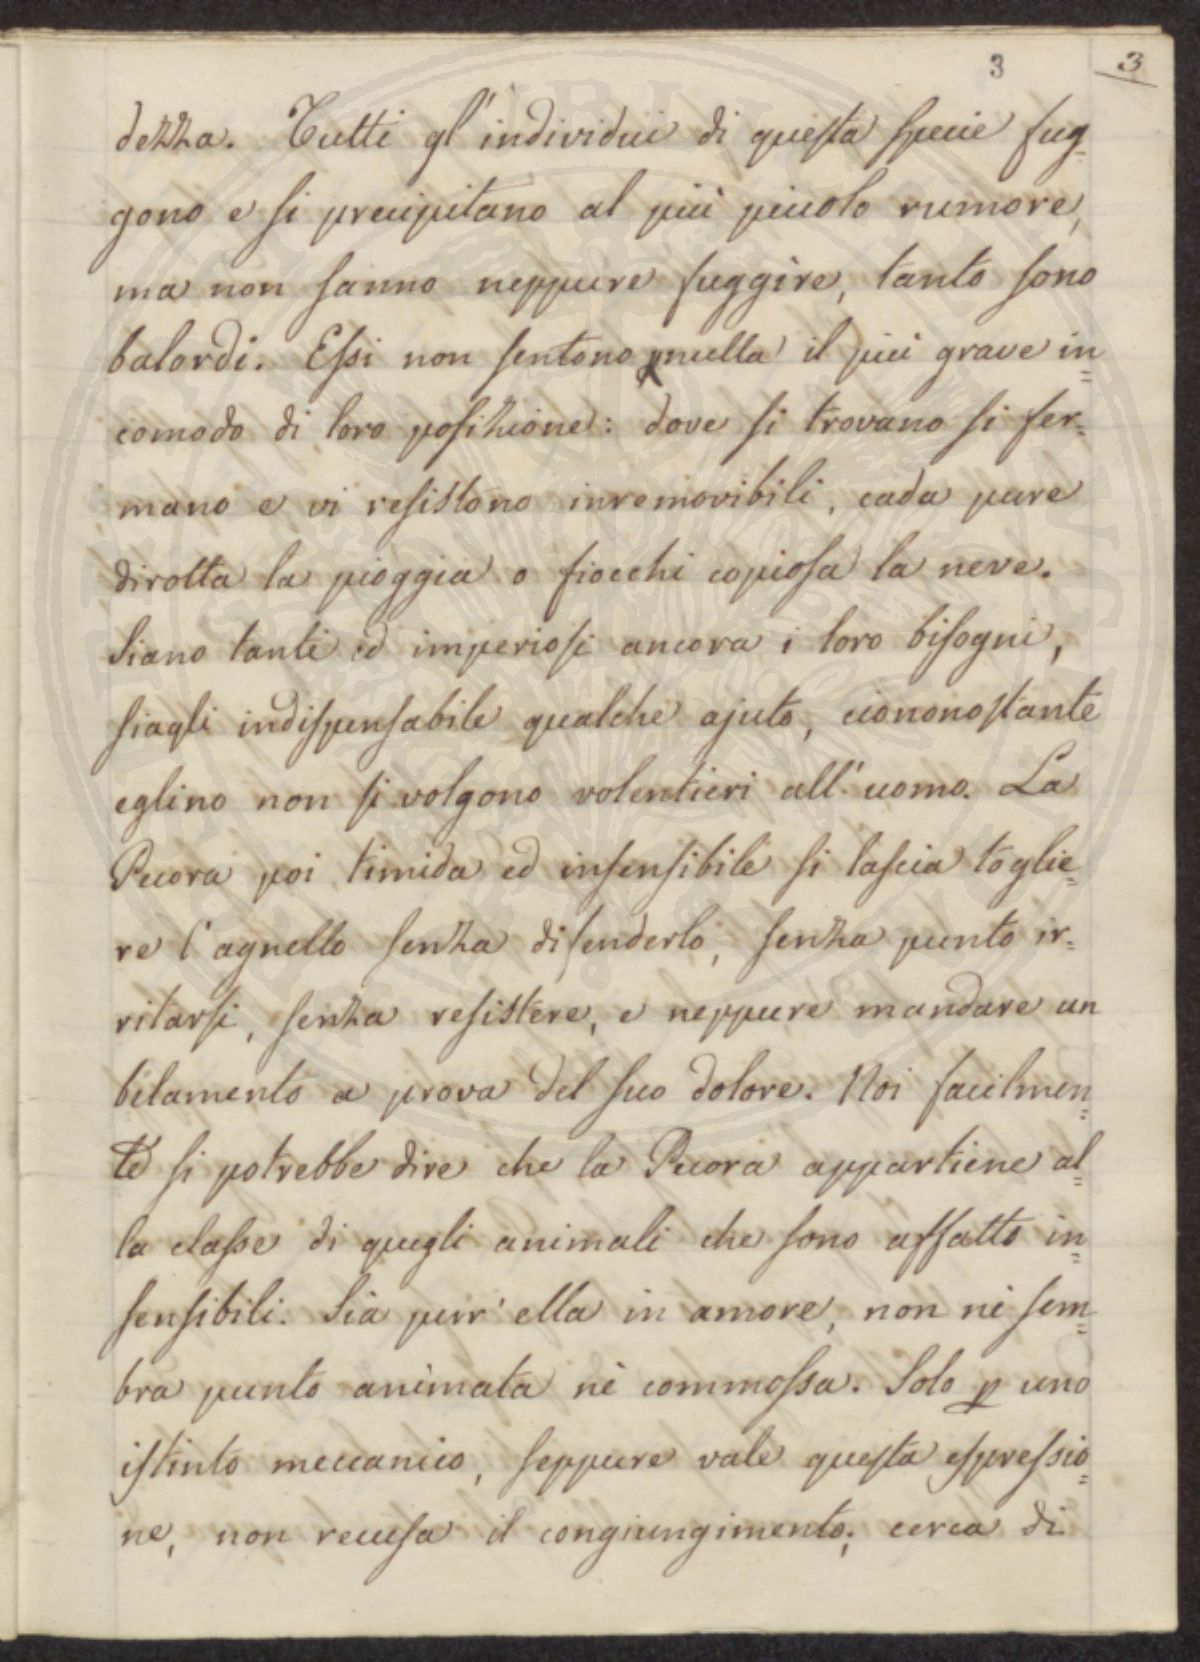 3 3
dezza. Tutti gl'individui di questa specie fug=
gono e si precipitano al più piccolo rumore,
ma non sanno neppure fuggire, tanto sono
balordi. Essi non sentono p nulla il più grave in=
comodo di loro posizione: dove si trovano si fer=
mano e vi resistono inremovibili, cada pure
dirotta la pioggia o fiocchi copiosa la neve.
Siano tanti ed imperiosi ancora i loro bisogni,
siagli indispensabile qualche ajuto, ciononostante
eglino non si volgono volentieri all'uomo. La
Pecora poi timida ed insensibile si lascia toglie=
re l'agnello senza difenderlo, senza punto ir=
ritarsi, senza resistere, e neppure mandare un
belamento a prova del suo dolore. Noi facilmen=
te si potrebbe dire che la Pecora appartiene al=
la classe di quegli animali che sono affatto in=
sensibili. Sia pur' ella in amore, non nè sem=
bra punto animata nè commossa. Solo p uno
istinto meccanico, seppure vale questa espressio=
ne, non recusa il congiungimento; cerca di